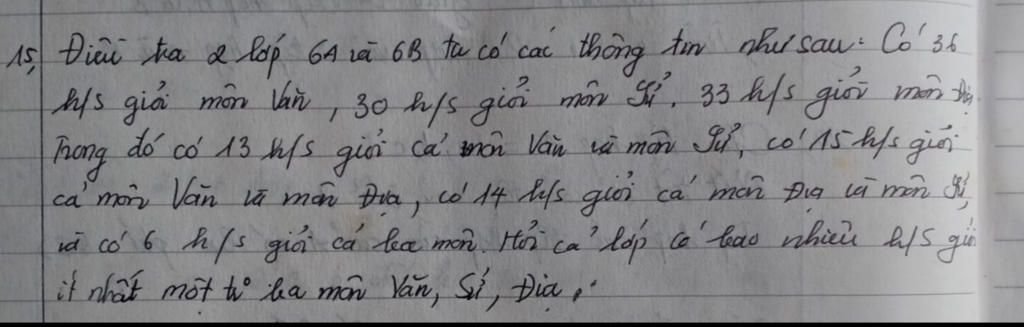 15, Điều tra 2 lớp 6A và 6B ta có các thông tin như sau: Có 36
h/s giỏi môn Văn, 30 h/s giỏi môn Sử, 33 h/s giỏi môn Địa.
Trong đó có 13 h/s giỏi cả môn Văn và môn Sử, có 15 h/s giỏi
cả môn Văn và môn Địa, có 14 h/s giỏi cả môn Địa và môn Sử,
và có 6 h/s giỏi cả ba môn. Hỏi cả lớp có bao nhiêu h/s giỏi
ít nhất một ba môn Văn, Sử, Địa.